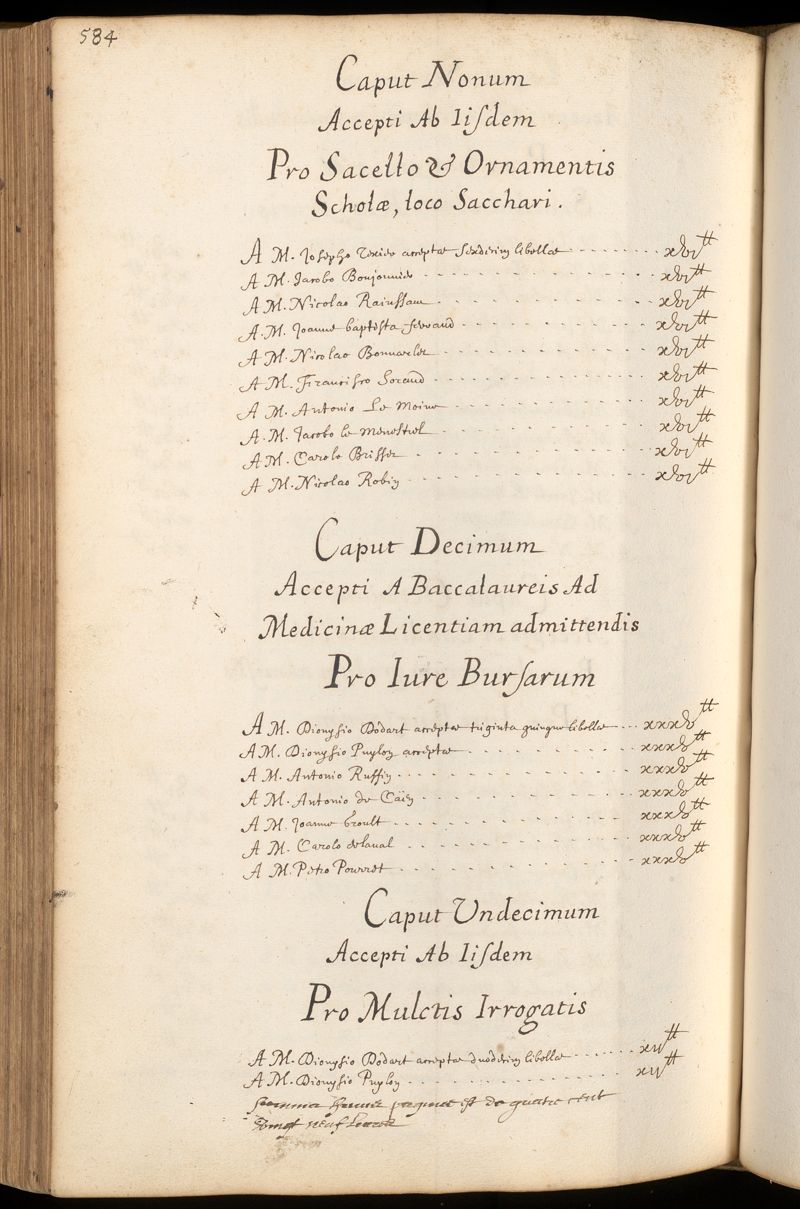 584
Caput Nonum
Accepti Ab Iiſdem
Pro Sacello & Ornamentis
Scholæ, loco Sacchari.
A M. Josepho acceptæ sexdecim libellæ xvj tt
A M. Jacobo Bonjonnier xvj tt
A M. Nicolao Rainssant xvj tt
A M. Joanne baptista ferrand xvj tt
A M. Nicolao Bonvarlet xvj tt
A M. Francisco Lorand xvj tt
A M. Antonio Le Moine xvj tt
A M. Jacobo le menestrel xvj tt
A M. Carolo Brisset xvj tt
A M. Nicolao Robin xvj tt
Caput Decimum
Accepti A Baccalaureis Ad
Medicinæ Licentiam admittendis
Pro Iure Burſarum
A M. Dionysio Dodart acceptæ triginta quinque libellæ xxxv tt
A M. Dionysio Puylon acceptæ xxxv tt
A M. Antonio Ruffin xxxv tt
A M. Antonio de Caën xxxv tt
A M. Joanne broult xxxv tt
A M. Carolo delaval xxxv tt
A M. Petro Pourret xxxv tt
Caput Undecimum
Accepti Ab Iiſdem
Pro Mulctis Irrogatis
A M. Dionysio Dodart acceptæ duodecim libellæ xij tt
A M. Dionysio Puylon xij tt
Somma est de quatre cent
vingt neuf